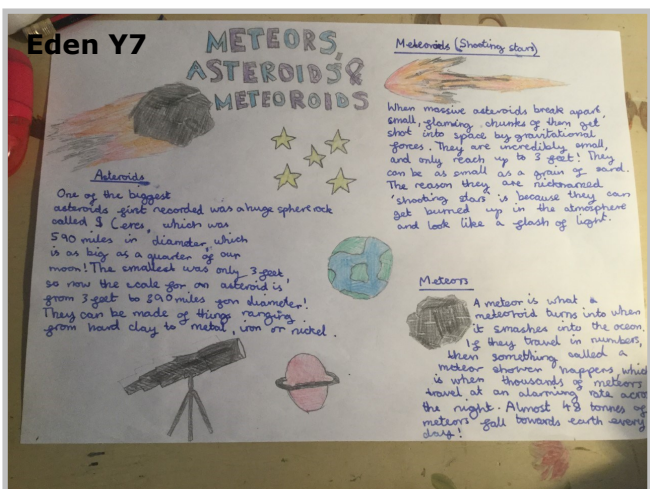 Eden Y7
METEORS,
ASTEROIDS &
METEOROIDS
Asteroids
One of the biggest
asteroids first recorded was a huge sphere rock
called Ceres, which was
590 miles in diameter, which
is as big as a quarter of our
moon! The smallest was only 3 feet,
so now the scale for an asteroid is
from 3 feet to 590 miles for diameter!
They can be made of things ranging
from hard clay to metal, iron or nickel.
Meteoroids (Shooting stars)
When massive asteroids break apart,
small, flaming chunks of them get
shot into space by gravitational
forces. They are incredibly small,
and only reach up to 3 feet! They
can be as small as a grain of sand.
The reason they are nicknamed
'shooting stars' is because they can
get burned up in the atmosphere
and look like a flash of light.
Meteors
A meteor is what a
meteoroid turns into when
it smashes into the ocean.
If they travel in numbers,
then something called a
meteor shower happens, which
is when thousands of meteors
travel at an alarming rate across
the night. Almost 48 tonnes of
meteors fall towards earth every
day!